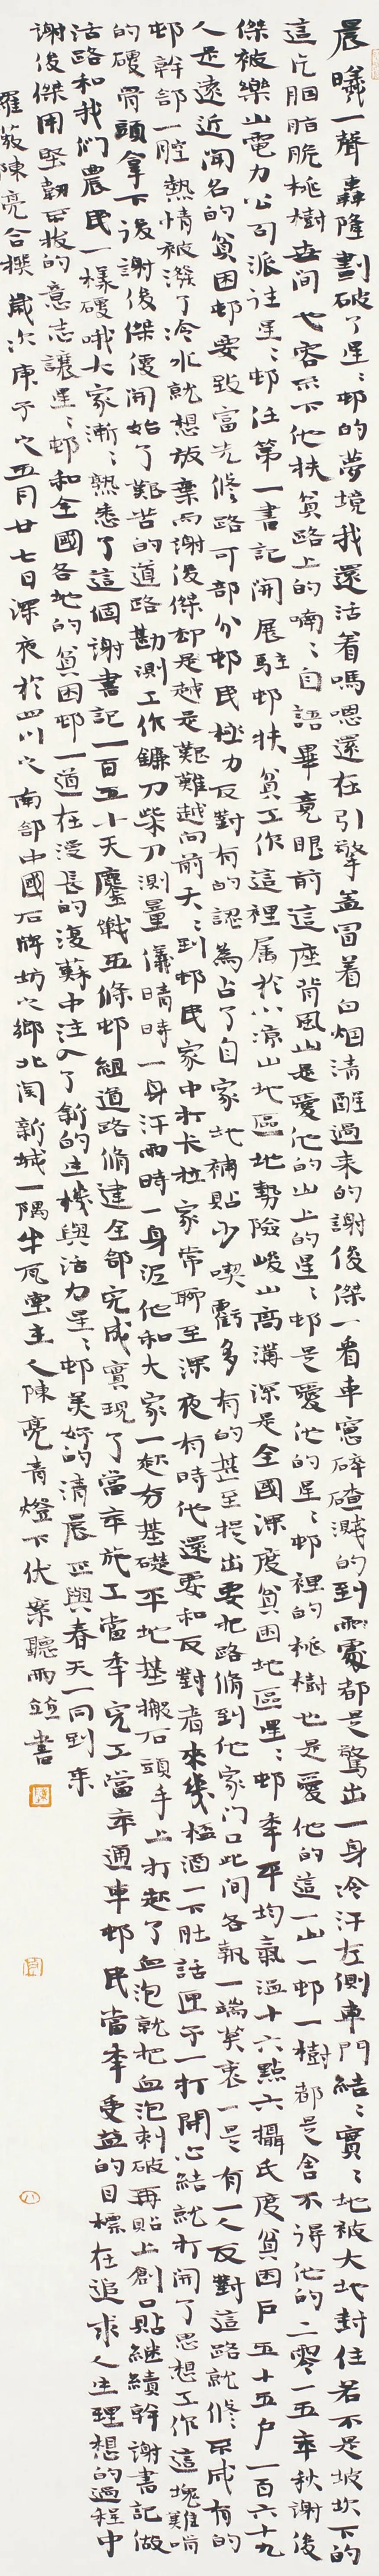 晨曦一聲轟隆劃破了星〻邨的夢境我還活着嗎嗯還在引擎蓋冒着白烟清醒過来的謝俊傑一看車窓碎碴濺的到處都是驚出一身冷汗左側車門結〻實〻地被大地封住若不是坡坎下的
這片胭脂脆桃樹世間也容不下他扶貧路上的喃〻自語畢竟眼前這座背風山是愛他的山上的星〻邨是愛他的星〻邨裡的桃樹也是愛他的這一山一邨一樹都是舍不得他的二零一五年秋謝俊
傑被樂山電力公司派往星〻邨任第一書記開展駐邨扶貧工作這裡属於小凉山地區地勢險峻山高溝深是全國深度貧困地區星〻邨年平均氣温十六點六攝氏度貧困户五十五户一百六十九
人是遠近聞名的貧困邨要致富先修路可部分邨民極力反對有的認為占了自家地補貼少喫虧多有的甚至提出要把路脩到他家门口此間各執一端莫衷一是〻有一人反對這路就修不成有的
邨幹部一腔熱情被潑了冷水就想放棄而謝俊傑却是越是艱難越向前天〻到邨民家中打卡拉家常聊至深夜有時他還要和反對者來幾極酒一下肚話匣子一打開心結就打開了思想工作這塊難啃
的硬骨頭拿下後謝俊傑便開始了艱苦的道路勘測工作鐮刀柴刀測量儀晴時一身汗雨時一身泥他和大家一起夯基礎平地基搬石頭手上打起了血泡就把血泡刺破再貼上創口貼継續幹謝書記做
活路和我们農民一樣硬哦大家漸〻熟悉了這個謝書記一百五十天鏖戰五條邨組道路脩建全部完成實現了當年施工當年完工當年通車邨民當年受益的目標在追求人生理想的過程中
謝俊傑用堅韌不拔的意志讓星〻邨和全國各地的貧困邨一道在漫長的復蘇中注入了新的生機與活力星〻邨美好的清晨正與春天一同到来
羅薇陳亮合撰歲次庚子之五月廿七日深夜於四川之南部中國石牌坊之鄉北関新城一隅牛瓦堂主人陳亮青燈下伏案聽雨並書